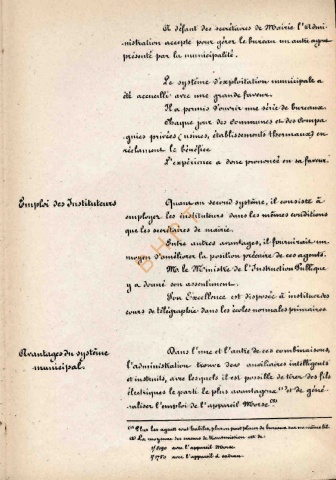 A défaut des secrétaires de Mairie l'Admi-
nistration accepte pour gérer le bureau un autre agent
présenté par la municipalité.
Le système d'exploitation municipale a
été accueilli avec une grande faveur.
Il a permis d'ouvrir une série de bureaux.
Chaque jour des Communes et des Compa-
gnies privées (usines, établissements thermaux) en
réclament le bénéfice
L'expérience a donc prononcé en sa faveur.
Emploi des Instituteurs
Quant au second système, il consiste à
employer les instituteurs dans les mêmes conditions
que les secrétaires de mairie.
Entre autres avantages, il fournirait un
moyen d'améliorer la position précaire de ces agents.
Mr. le Ministre de l'Instruction Publique
y a donné son assentiment.
Son Excellence est disposée à instituer des
cours de télégraphie dans les écoles normales primaires
Avantages du système
municipal.
Dans l'une et l'autre de ces combinaisons,
l'administration trouve des auxiliaires intelligents
et instruits, avec lesquels il est possible de tirer des fils
électriques le parti le plus avantageux (1) et de géné-
raliser l'emploi de l'appareil Morse (2)
(1) Plus les agents sont habiles, plus on peut placer de bureaux sur un même fil
(2) La moyenne des erreurs de transmission est de
avec l'appareil Morse.
avec l'appareil à cadran.
B.H.P.T